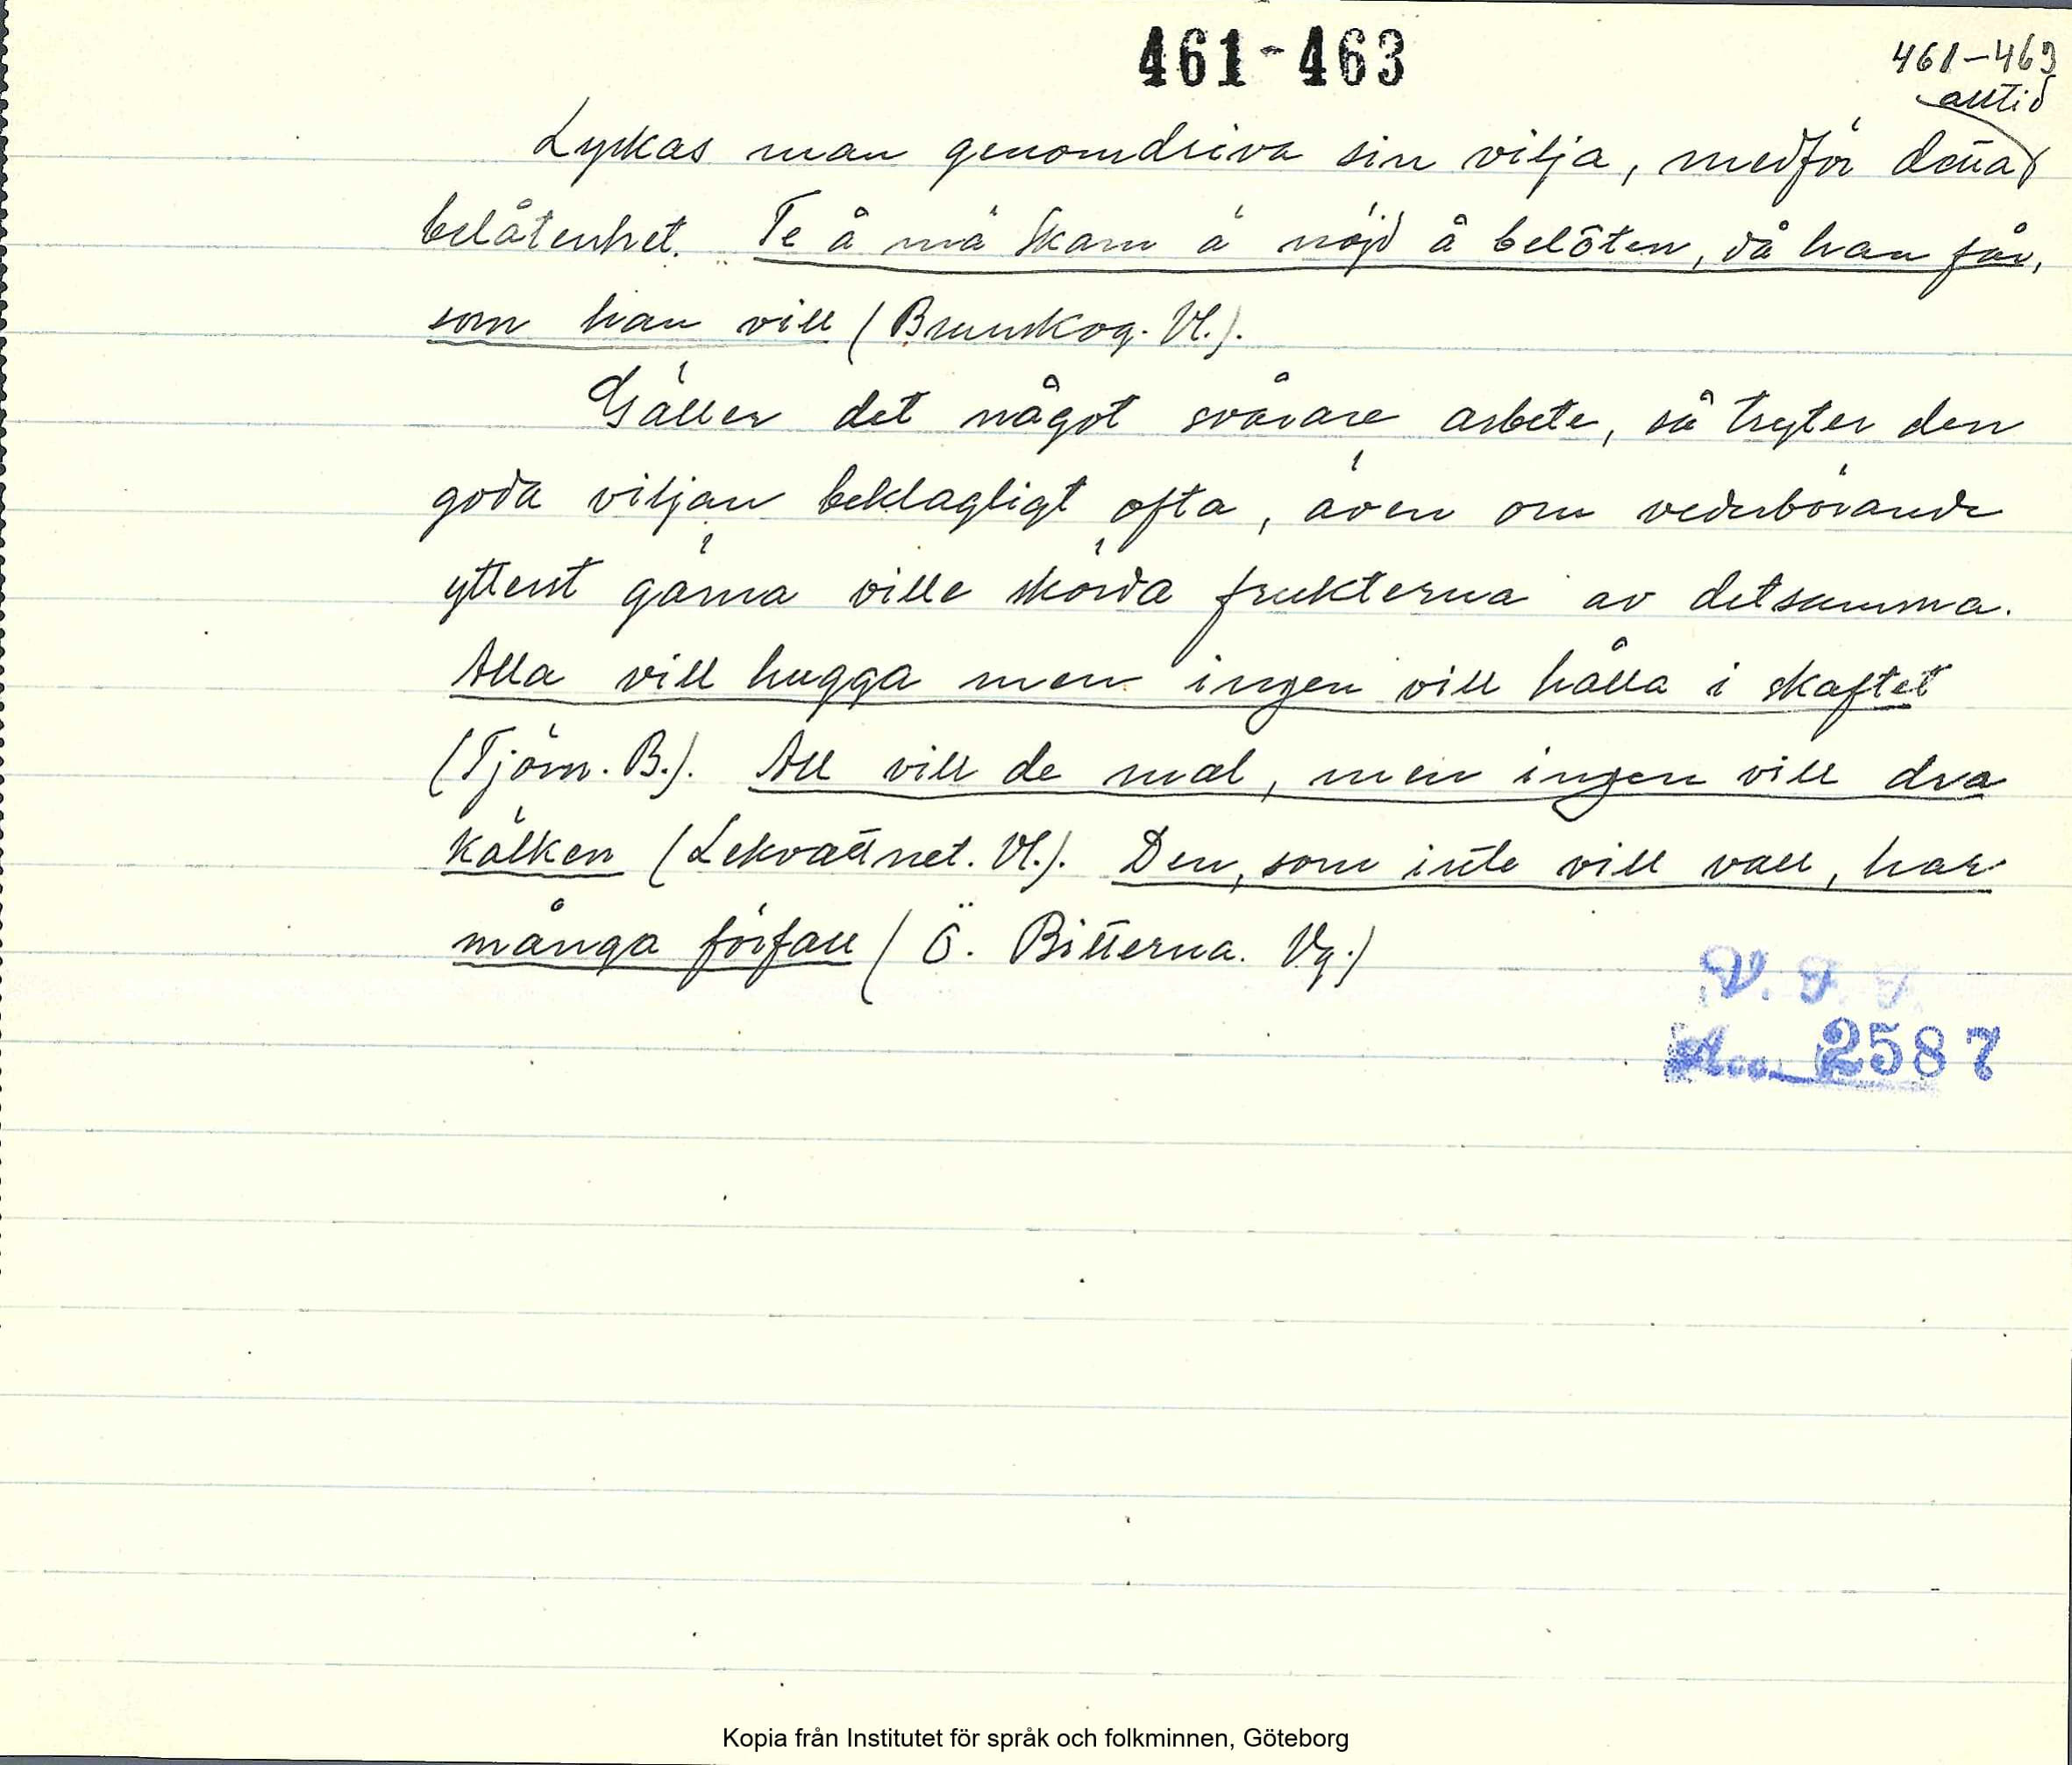 461-463
461-463
alltid
Lyckas man genomdriva sin vilja, medför detta
belåtenhet. Te å mä Skam ä nöjd å belôten, då han får,
som han vill (Brunskog. Vl.).
Gäller det något svårare arbete, så tryter den
goda viljan beklagligt ofta, även om vederbörande
ytterst gärna ville skörda frukterna av detsamma.
Alla vill hugga men ingen vill hålla i skaftet
(Tjörn. B.). All vill de mal, men ingen vill dra
kälken (Lekvattnet. Vl.). Den, som inte vill vall, har
många förfall (Ö. Bitterna. Vg.)
V. F. F.
Acc. 2587
Kopia från Institutet för språk och folkminnen, Göteborg